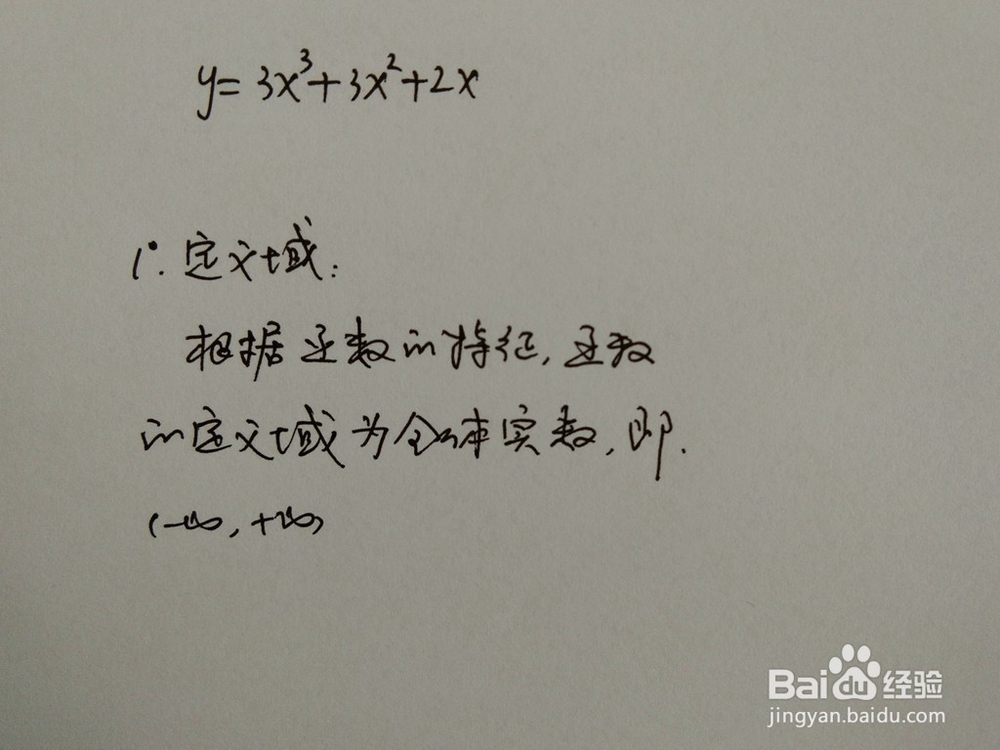 y=3x³+3x²+2x
1°. 定义域:
根据函数的特征,函数
的定义域为全体实数,即.
(-∞,+∞)
Baidu经验
jingyan.baidu.com